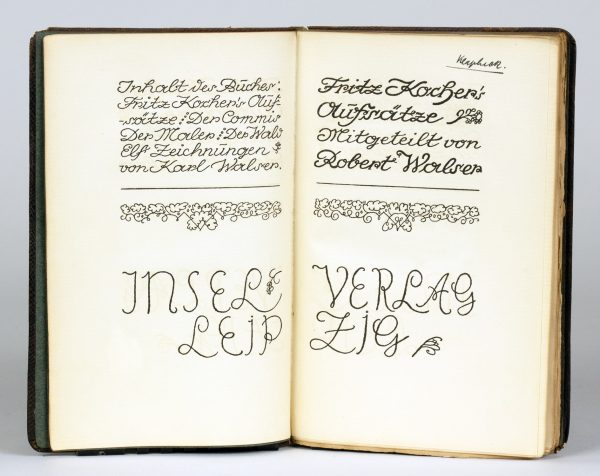 Inhalt des Buches:
Fritz Kocher's Auf-
sätze : Der Commis
Der Maler : Der Wald
Elf Zeichnungen
von Karl Walser.
INSEL
LEIP
Fritz Kocher's
Aufsätze
Mitgeteilt von
Robert Walser
VERLAG
ZIG